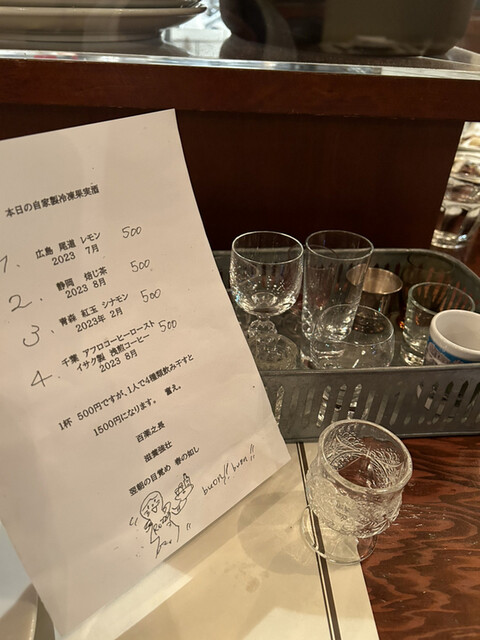 本日の自家製冷凍果実酒
1. 広島 尾道 レモン 500
2023 7月
2. 静岡 焙じ茶 500
2023 8月
3. 青森 紅玉 シナモン 500
2023年 2月
4. 千葉 アフロコーヒーロースト 500
イサク製 浅煎コーヒー
2023 8月
1杯 500円ですが、1人で4種類飲み干すと
1500円になります。 震え。
百薬之長
滋養強壮
翌朝の目覚め 春の如し
buon!! buon!!